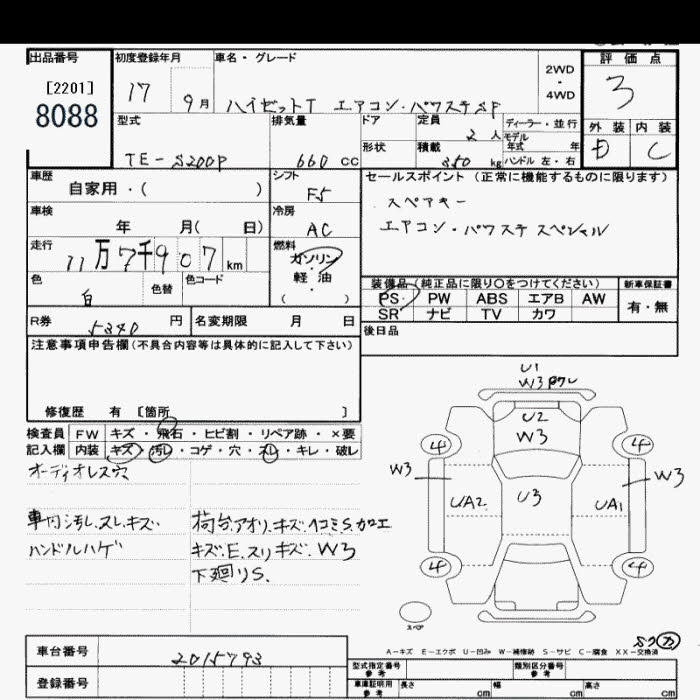 出品番号
[2201]
8088
初度登録年月
17 9月
車名・グレード
ハイゼットT エアコン・パワステSP
2WD
・
4WD
評価点
3
外装 内装
D C
型式
TE-S200P
排気量
660 cc
ドア
形状
定員
2 人
積載
350 kg
ディーラー・並行
モデル
年式 年
ハンドル 左・右
車歴
自家用・( )
シフト
F5
セールスポイント (正常に機能するものに限ります)
スペアキー
エアコン・パワステ スペシャル
車検
年 月( 日)
冷房
AC
走行
11万7千907km
燃料
ガソリン
軽・油
( )
色
白
色替
色コード
装備品 (純正品に限り○をつけてください)
PS PW ABS エアB AW
SR ナビ TV カワ
新車保証書
有・無
R券
5340 円
名変期限 月 日
後日品
注意事項申告欄(不具合内容等は具体的に記入して下さい)
修復歴 有 [箇所 ]
検査員
記入欄
FW キズ・飛石・ヒビ割・リペア跡・×要
内装 キズ・汚レ・コゲ・穴・スレ・キレ・破レ
オーディオレス穴
車内汚レ.スレ.キズ
ハンドルハゲ
荷台.アオリ.キズ.凹コミS.カロエ
キズ.E.スリキズ.W3
下廻りS.
U1
W3
U2
W3
4 4
W3 W3
UA2 U3 UA1
4 4
スペア
A-キズ E-エクボ U-凹み W-補修跡 S-サビ C-腐食 XX-交換済
車台番号
2015793
登録番号
型式指定番号
参考
類別区分番号
参考
車庫証明用
参考
長さ cm 幅 cm 高さ cm